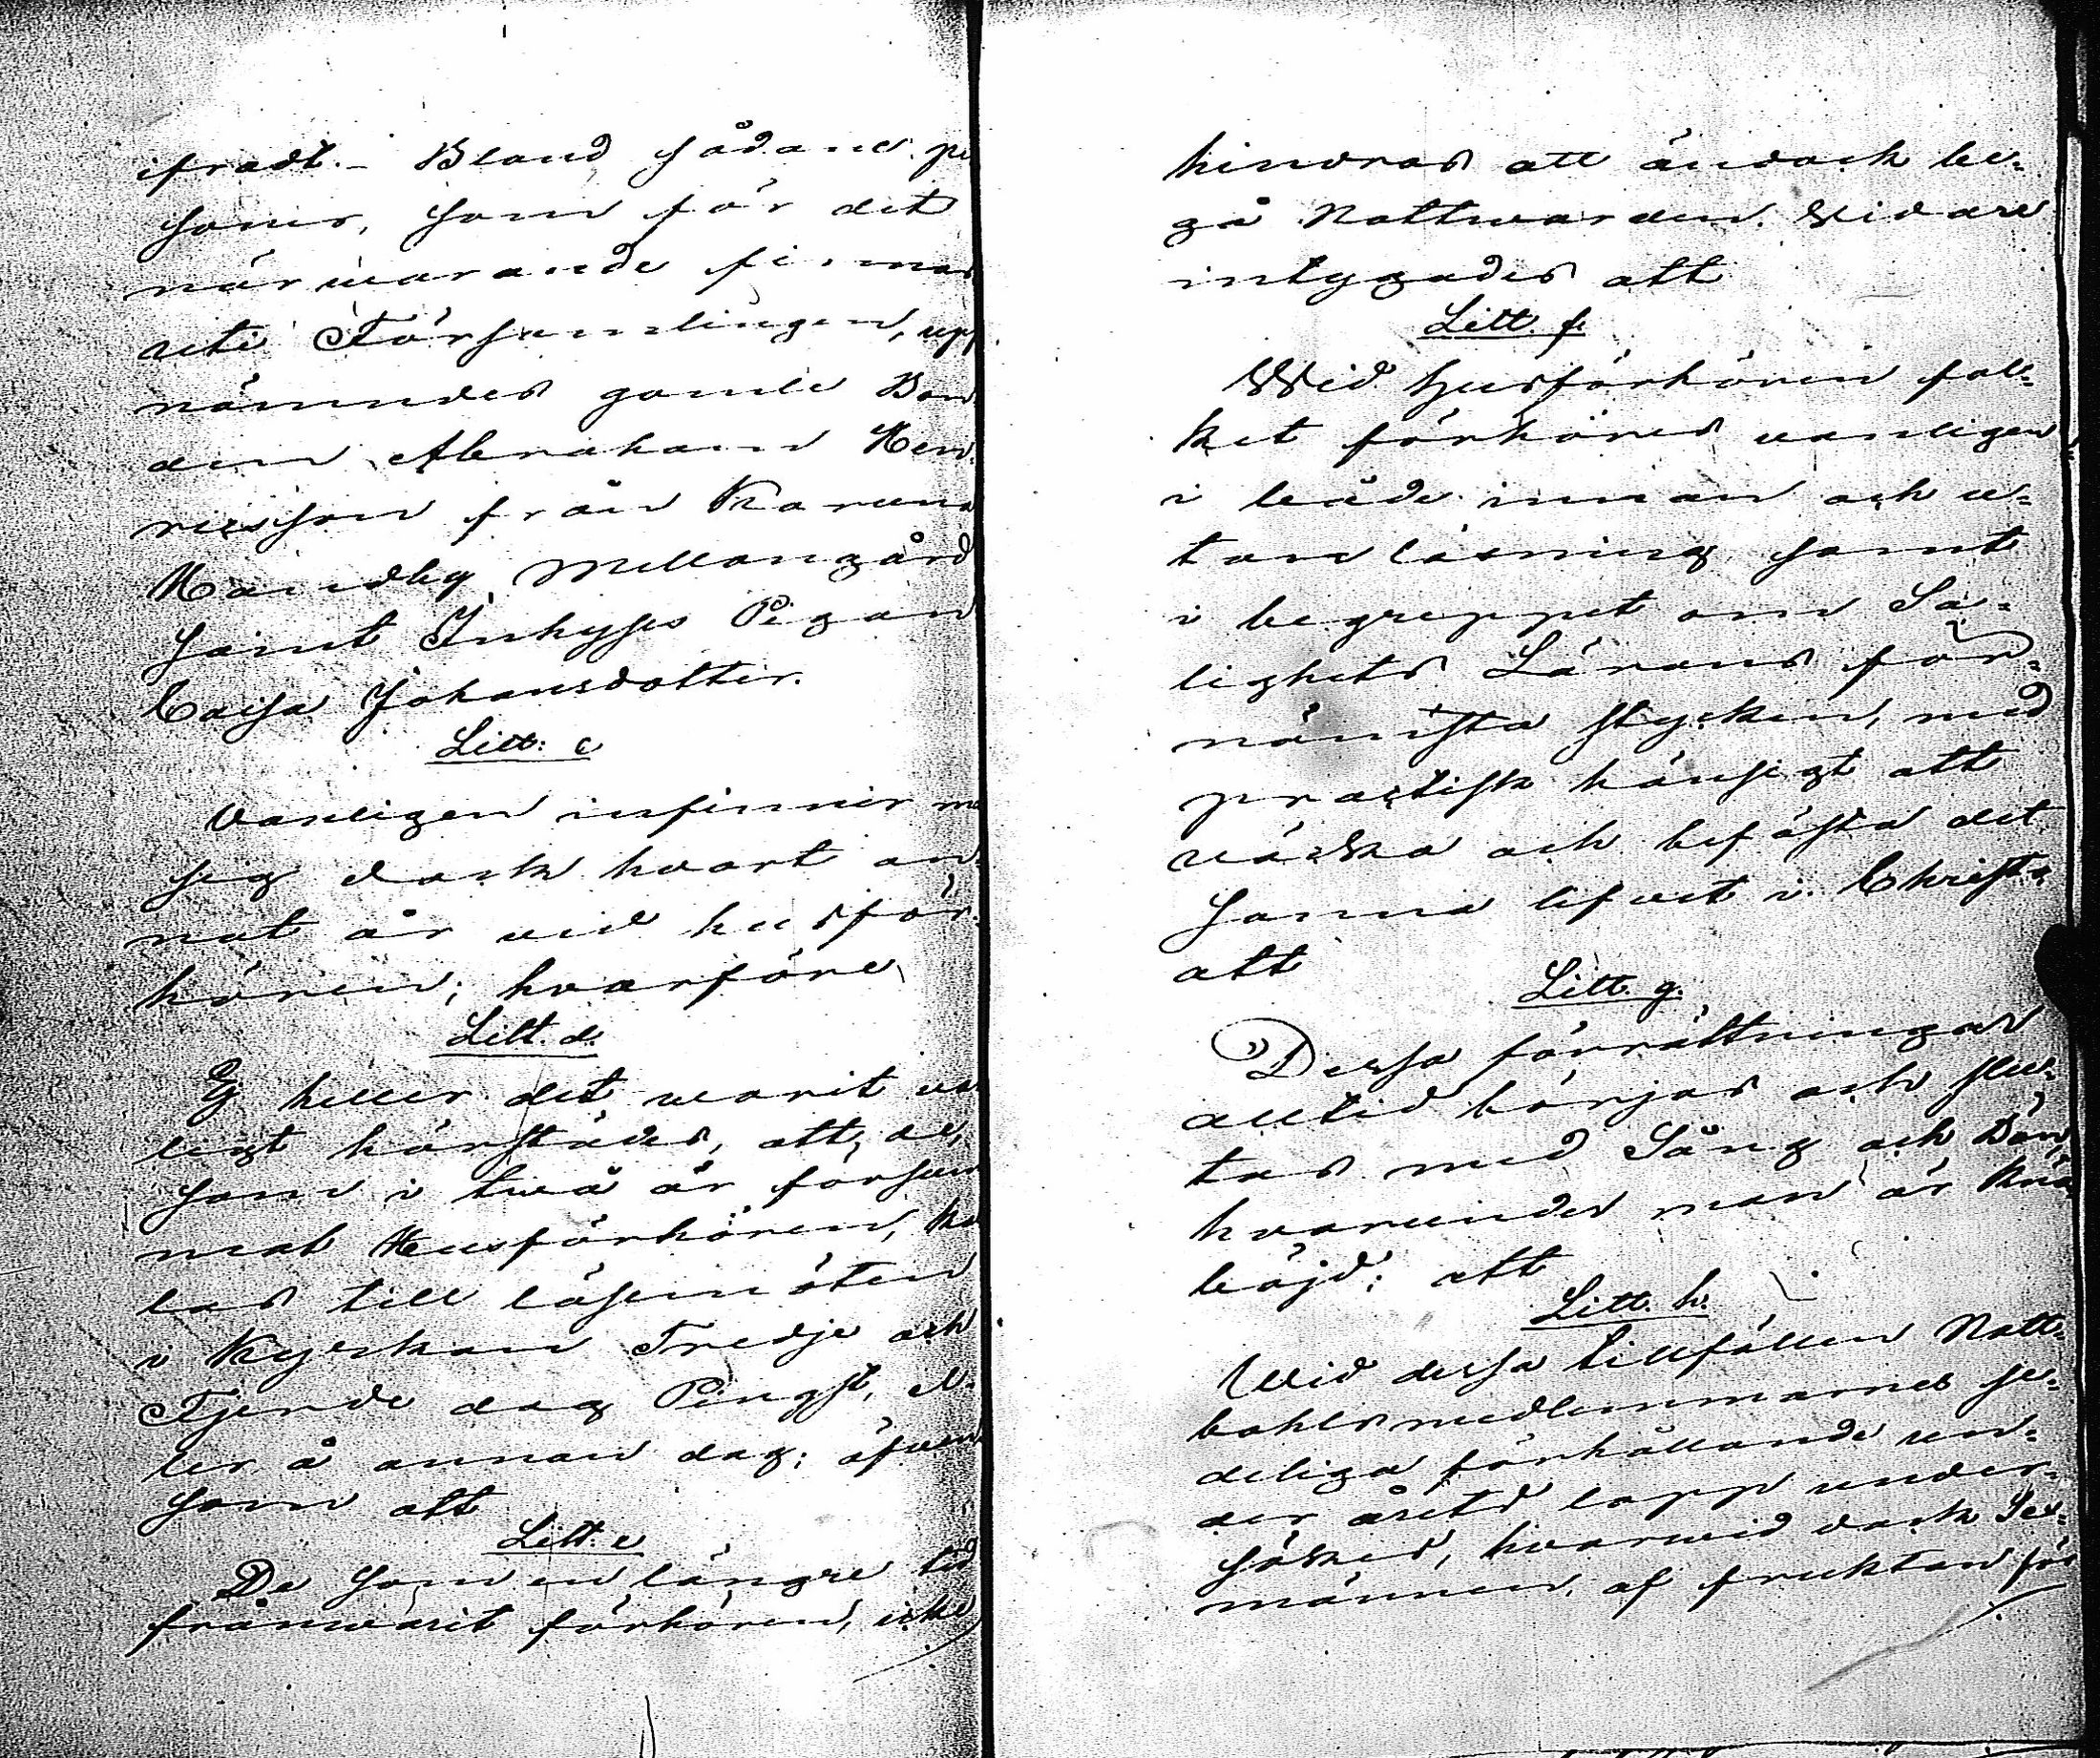 ifradt. - Bland sådane pe
soner, som för det
närwarande finnas
uti Församlingen, upp
nämndes gamle Bon
den Abraham Hen
ricsson från Karuna
Håndby Mellangård
samt Inhyses Pigan
Caisa Johansdotter.
Litt: c
Vanligen infinner ma
sig dock hvart an=
nat år vid husför=
hören; hvarföre
Litt. d.
Ej heller det warit va
ligt härstädes, att de,
som i twå år försum
mat Husförhören, ka
las till läsemöten
i Kyrkan Tredje och
Fjerde dag Pingst, el=
ler å annan dag; äfwen
som att
Litt. e
De som en längre tid
frånwarit förhören, icke
hindras att ändock be=
gå Nattwarden. Vidare
intygades att
Litt. f.
Wid Husförhören fol=
ket förhöres vanligen
i både innan och u=
tan läsning samt
i begreppet om Sa=
lighets Lärans för=
nämsta stycken, med
practisk hänsigt att
väcka och befästa det
sanna lifvet i Christo
att
Litt. g.
Dessa förrättningar
alltid börjas och slu=
tas med Sång och Bön,
hvarunder man är knä
böjd; att
Litt. h.
Wid dessa tillfällen Natt=
bohls medlemmarnes se=
deliga förhållande un=
der årets lopp under=
sökes, hvarwid dock Sex=
männen, af fruktan för